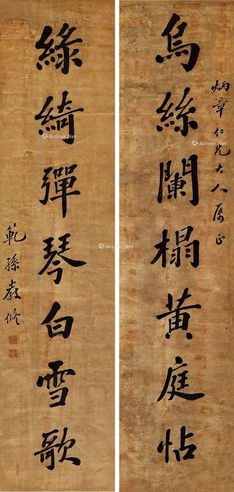 炳章仁兄大人屬正
烏絲闌榻黃庭帖
綠綺彈琴白雪歌
乾孫嚴修